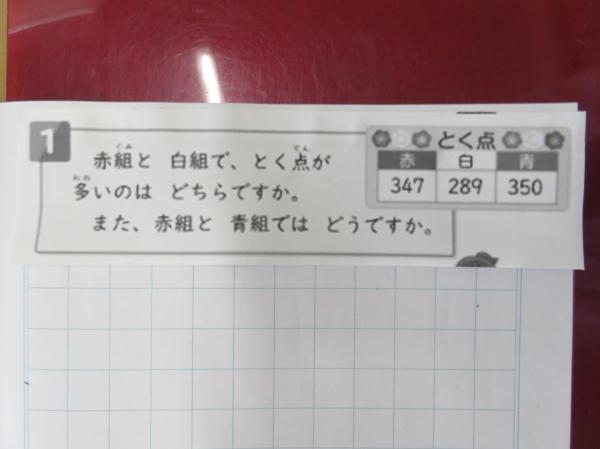 1
赤組と 白組で、とく点が
多いのは どちらですか。
また、赤組と 青組では どうですか。
ぐみ
てん
おお
とく点
赤 白 青
347 289 350